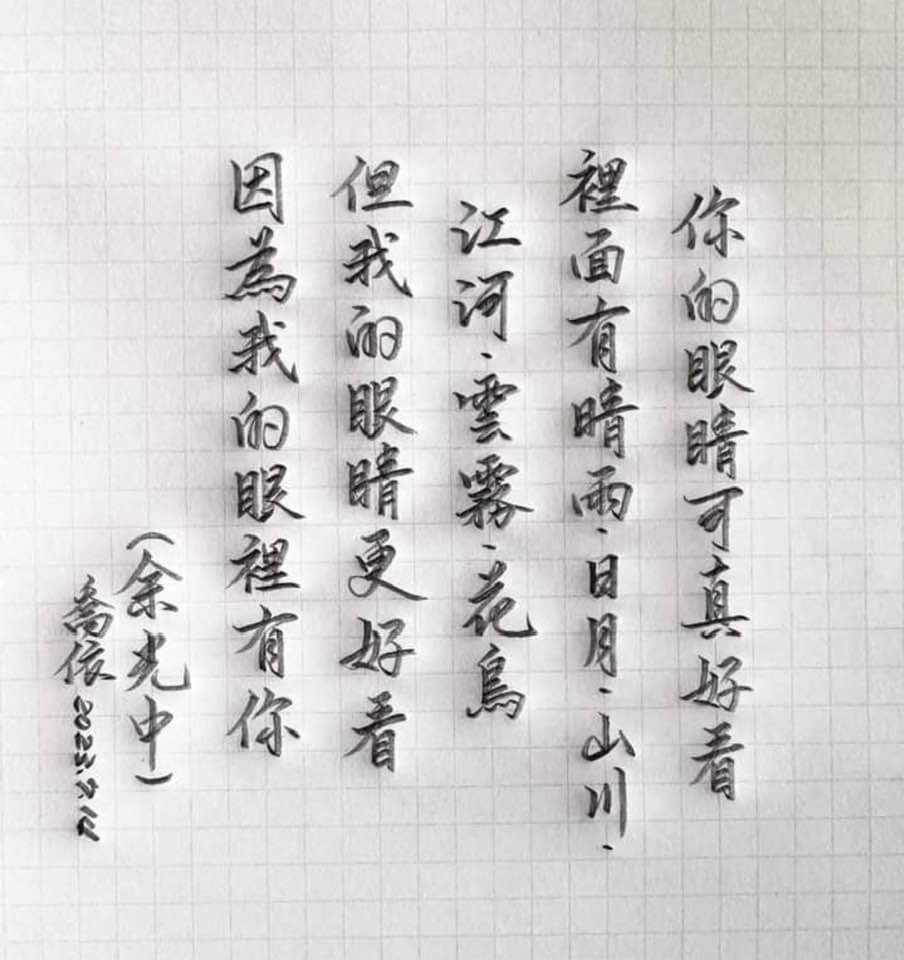 你的眼睛可真好看
裡面有晴雨、日月、山川、
江河、雲霧、花鳥
但我的眼睛更好看
因為我的眼裡有你
(余光中)
喬依 2023.7.14